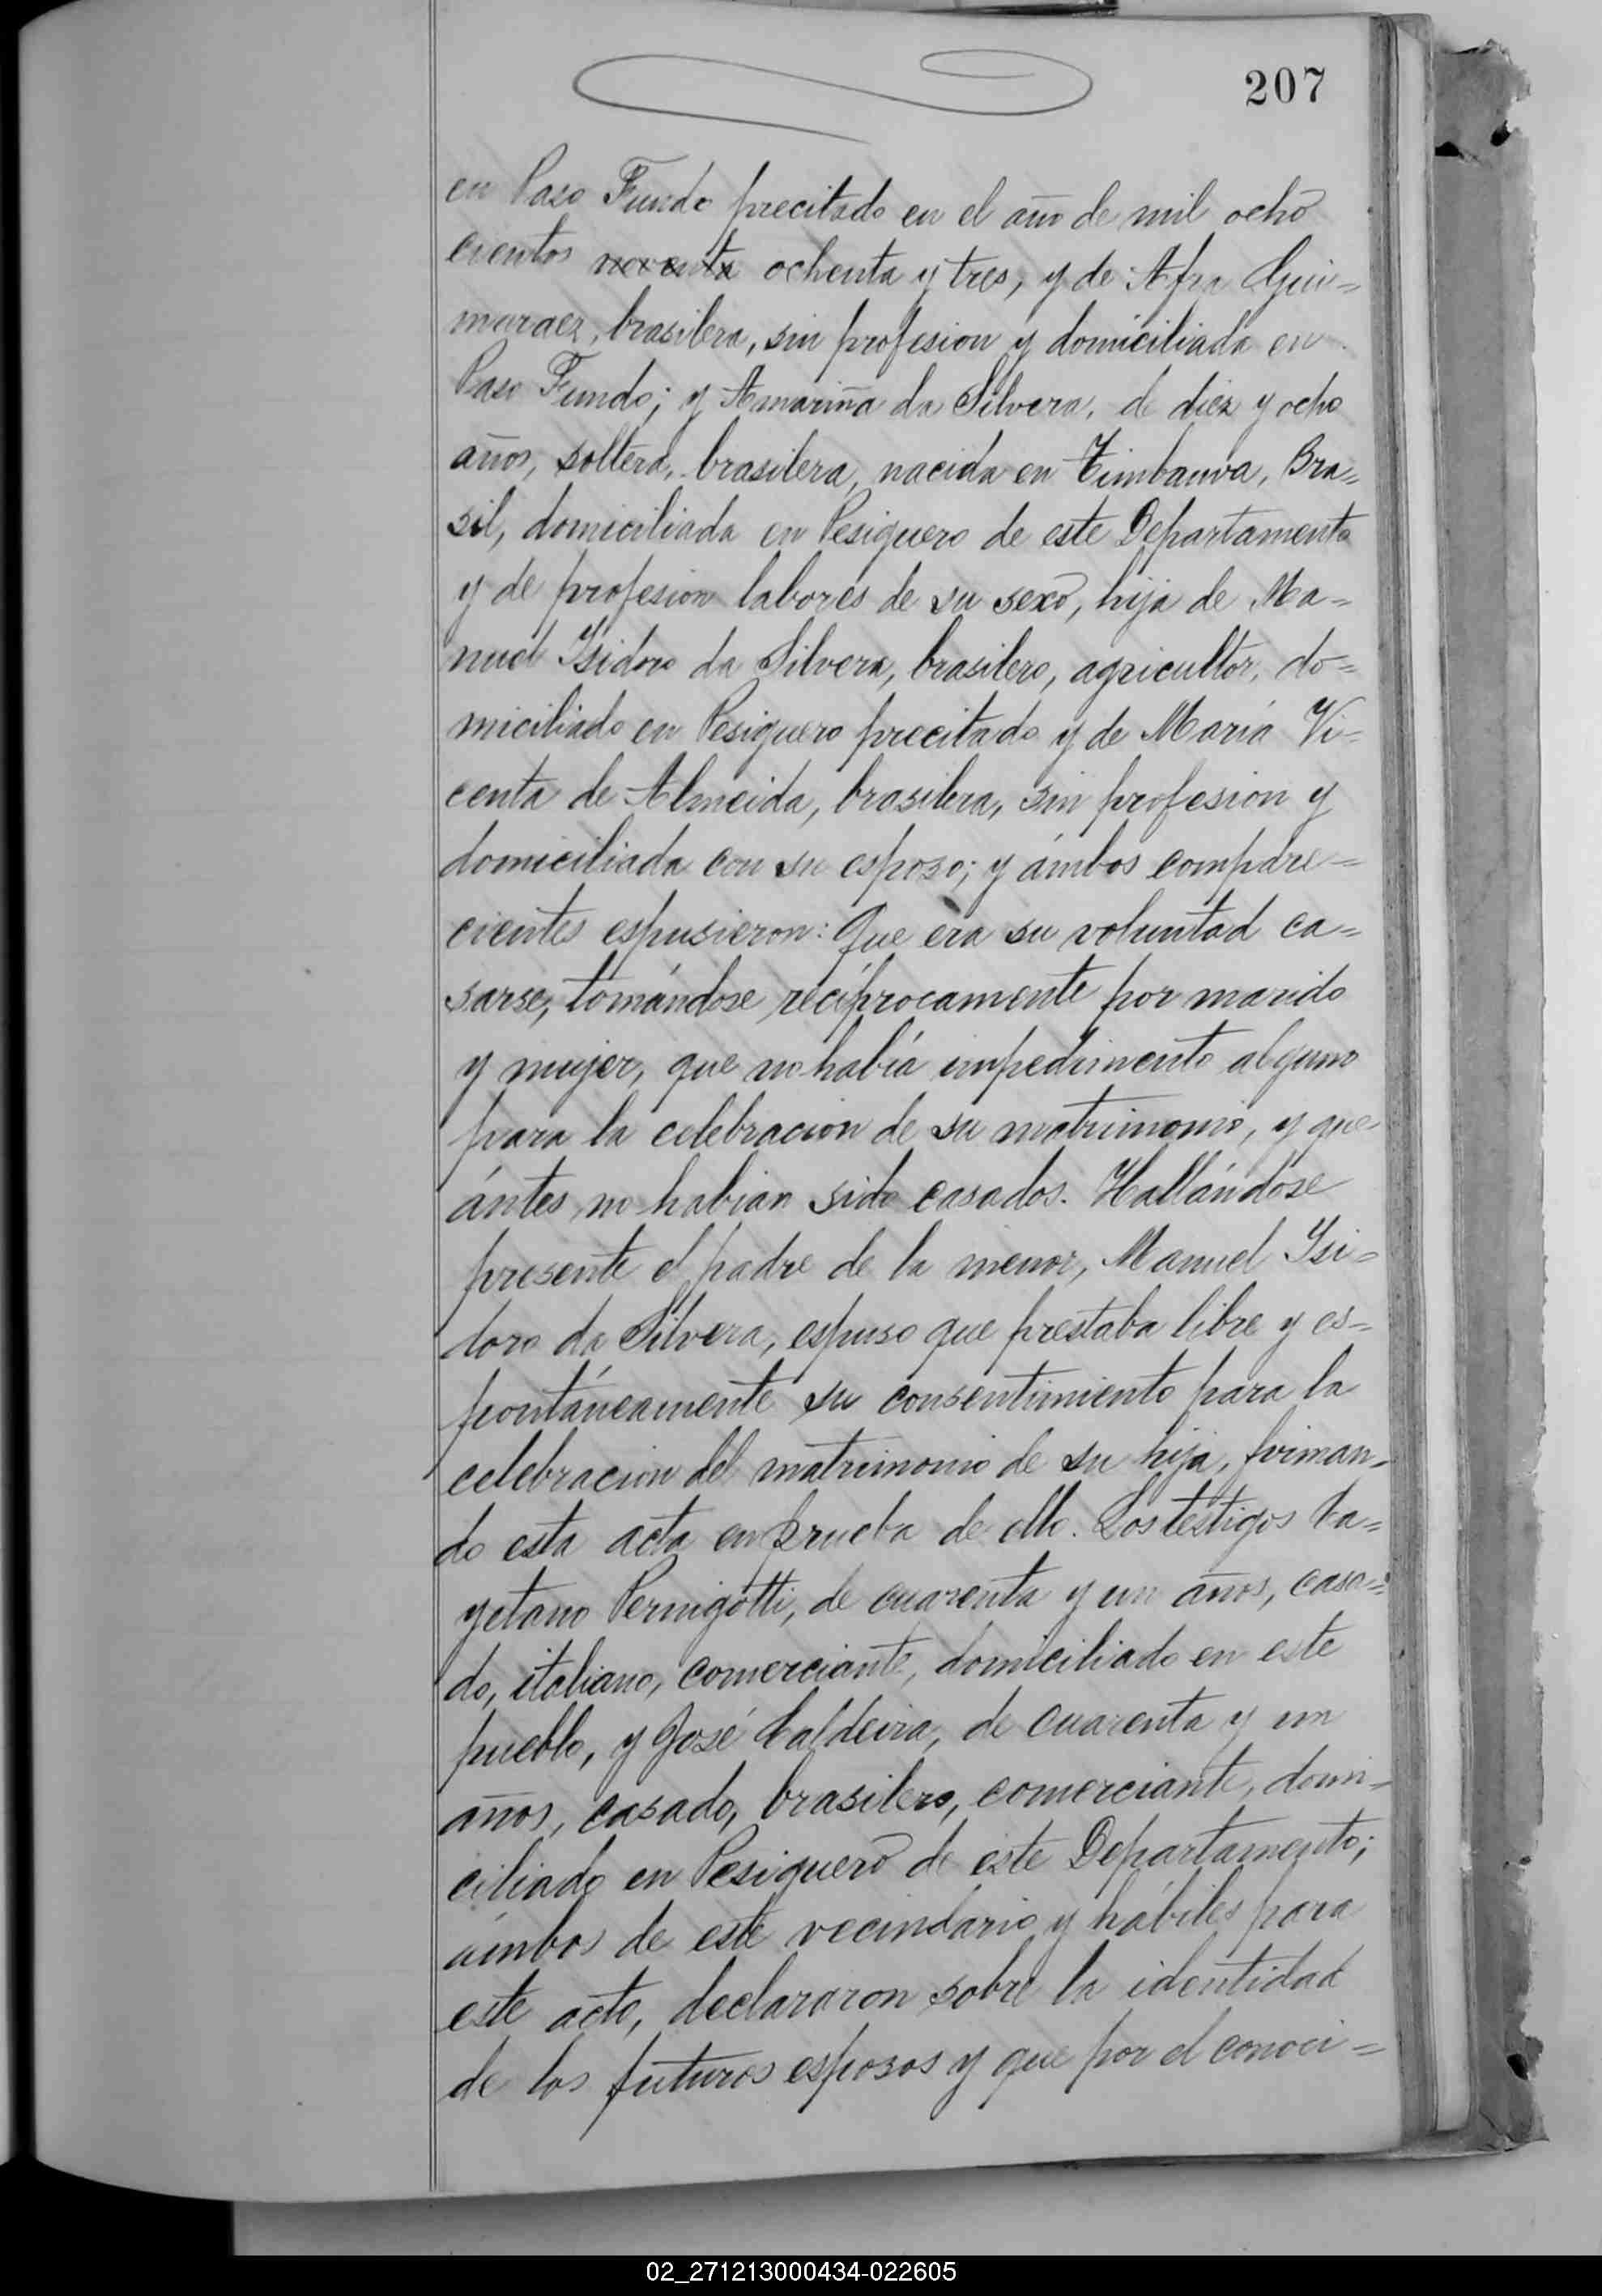 207
en Paso Fundo precitado en el año de mil ocho
cientos noventa ochenta y tres, y de Afra Gui=
maraez, brasilera, sin profesion y domiciliada en
Paso Fundo; y Amariña da Silvera, de diez y ocho
años, soltera, brasilera, nacida en Timbauva, Bra=
sil, domiciliada en Pesiguero de este Departamento
y de profesion labores de su sexo, hija de Ma=
nuel Isidoro da Silvera, brasilero, agricultor, do=
miciliado en Pesiguero precitado y de María Vi=
centa de Almeida, brasilera, sin profesion y
domiciliada con su esposo; y ámbos compare=
cientes espusieron: Que era su voluntad ca=
sarse, tomándose recíprocamente por marido
y mujer, que no había impedimento alguno
para la celebracion de su matrimonio, y que
ántes no habian sido casados. Hallándose
presente el padre de la menor, Manuel Isi=
doro da Silvera, espuso que prestaba libre y es=
pontáneamente su consentimiento para la
celebracion del matrimonio de su hija, firman=
do esta acta en prueba de ello. Los testigos Ca=
yetano Pernigotti, de cuarenta y un años, casa=
do, italiano, comerciante, domiciliado en este
pueblo, y José Caldeira, de cuarenta y un
años, casado, brasilero, comerciante, domi=
ciliado en Pesiguero de este Departamento;
ámbos de este vecindario y hábiles para
este acto, declararon sobre la identidad
de los futuros esposos y que por el conoci=
02_271213000434-022605